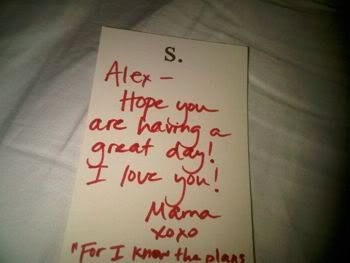 S.
Alex -
Hope you
are having a
great day!
I love you!
Mama
xoxo
"For I know the plans